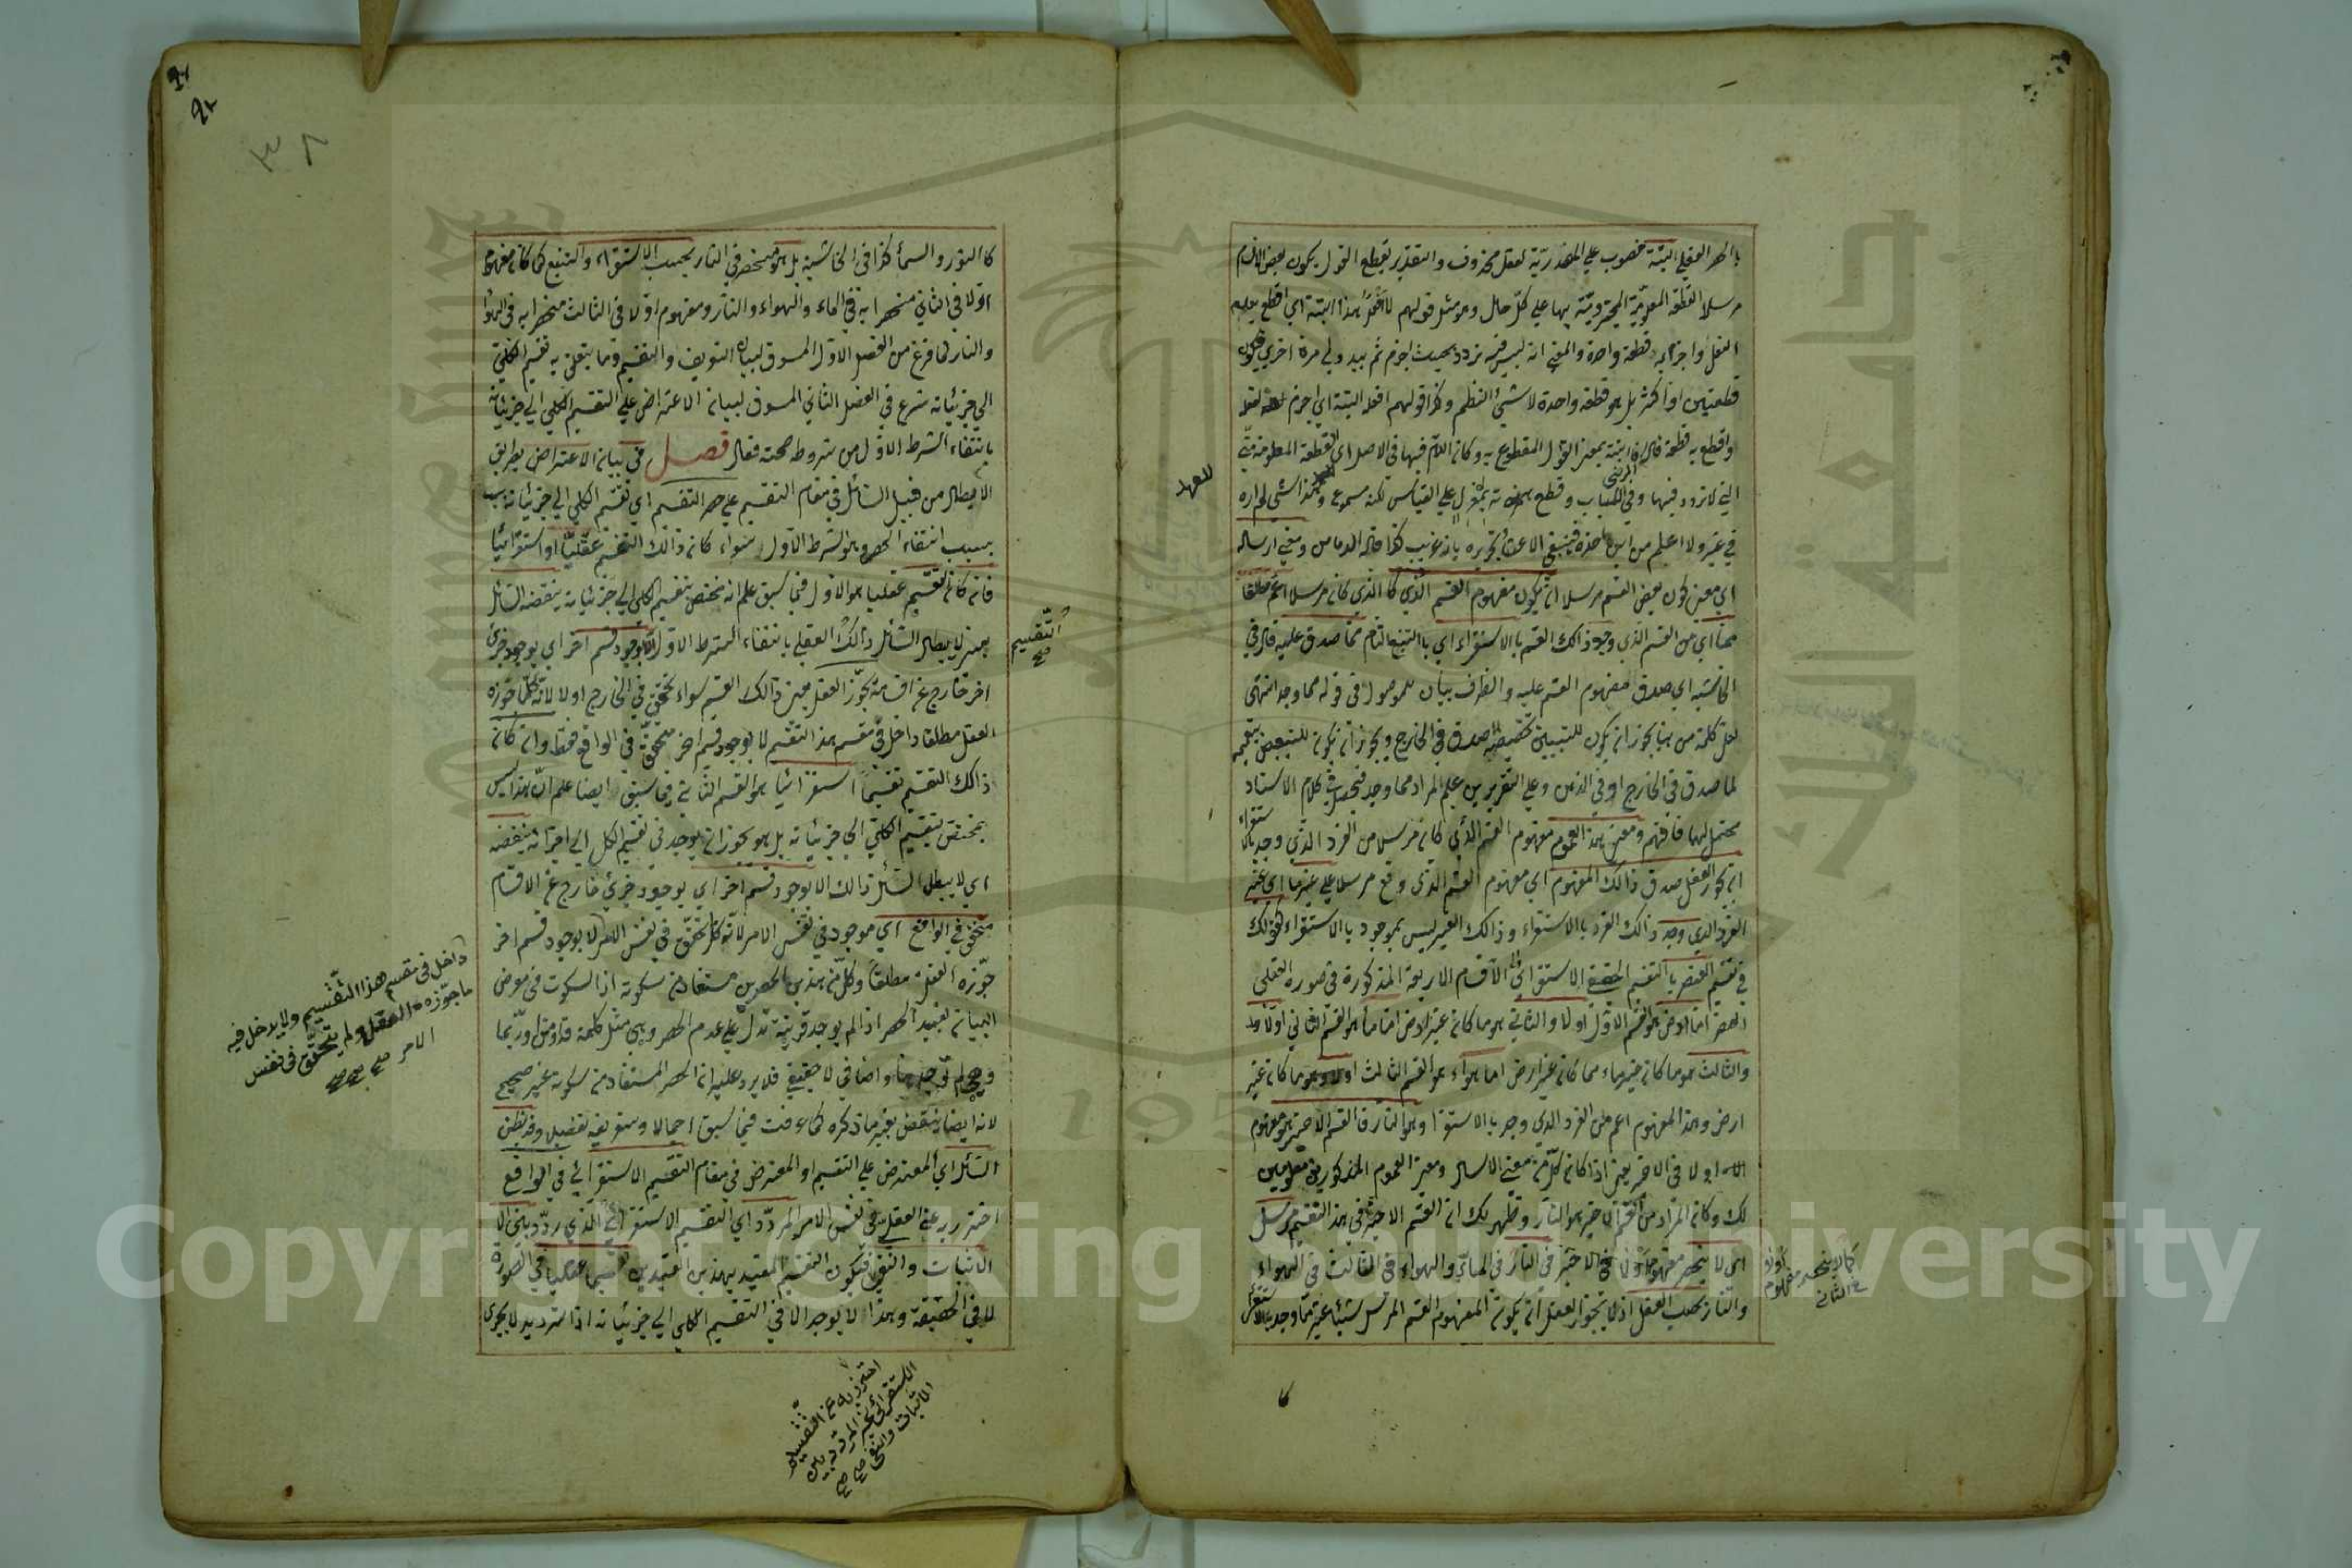 بالحصر العقلي البتة منصوب على المصدرية لفعل محذوف والتقدير يقطع القول بكون بعض الاقسام
مرسلا القطعة المعلومة بها على كل حال ومثل قولهم لا افعل هذا البتة اي اقطع بعدم
الفعل واجزم به قطعة واحدة والمعنى انه ليس فيه تردد بحيث اجزم ثم يبدو لي مرة اخرى فيكون
قطعتين او اكثر بل هو قطعة واحدة لا شيء النظم وكذا قولهم افعله البتة اي اجزم لفعله
واقطع به قطعة البتة بمعنى القول المقطوع به وكان اللام فيها في الاصل اي القطعة المعلومة مني
التي لا تردد فيها وفي اللباب وقطع على القياس لكنه مسموع
في غيره ولا اعلم من اين اخذه فينبغي بانه غريب كذا قاله الدماميني ومعنى ارساله
اي معنى كون بعض القسم مرسلا ان يكون مفهوم القسم الذي كان مرسلا اعم مطلقا
مما اي من القسم الذي وجد ذالك القسم بالاستقراء اي بالتتبع التام مما صدق عليه قال في
الحاشية اي صدق مفهوم القسم عليه والظرف بيان للموصول في قوله مما وجد انتهى
لعل كلمة من هنا يجوز ان يكون للتبيين صدق في الخارج ويجوز ان يكون للتبعيض
لما صدق في الخارج او في الذهن وعلى التقديرين علم المراد مما وجد كلام الاستاد
محتمل لهما فافهم ومعنى هذا العموم مفهوم القسم الذي كان مرسلا من الفرد الذي وجد بالاستقراء
ان يجوز العقل صدق ذالك المفهوم اي مفهوم القسم الذي وقع مرسلا على غيرها اي غير
الفرد الذي وجد ذالك الفرد بالاستقراء وذالك الغير ليس بموجود بالاستقراء كقولك
في تقسيم العنصر بالتقسيم الحقيقي الاستقرائي الى الاقسام الاربعة المذكورة في صورة العقلي
العنصر اما ارض هو القسم الاول اولا والثاني هو ما كان غير الارض اما ماء هو القسم الثاني اولا
والثالث هو ما كان غير ماء مما كان غير ارض اما هواء هو القسم الثالث او لا وهو ما كان غير
ارض وهذا المفهوم اعم من الفرد الذي وجد بالاستقراء وهو النار فالقسم الاخير هو مفهوم
او لا في الاخير يعني اذا كان كل من معنى الارسال ومعنى العموم المذكورين معلومين
لك وكان المراد من القسم الاخير هو النار وظهر لك ان القسم الاخير في هذا التقسيم مرسل
اي لا ينحصر مفهوم او لا في الاخير في النار في الماء والهواء وفي الثالث في الهواء
والنار بحسب العقل اذ يجوز العقل ان يكون المفهوم القسم المرسل شيئا غير ما وجد بالاستقراء
للعهد
كما لا ينحصر مفهوم او لا
في الثاني
كالنور والسماء كذا في الحاشية بل هو منحصر في النار بحسب الاستقراء والتتبع كما كان مفهوم
او لا في الثاني منحصرا به في الماء والهواء والنار ومفهوم او لا في الثالث منحصرا به في الهواء
والنار لما فرغ من الفصل الاول المسوق لبيان التعريف والتقسيم وما يتعلق به تقسيم الكلي
الى جزئياته شرع في الفصل الثاني المسوق لبيان الاعتراض على التقسيم الكلي الى جزئياته
بانتفاء الشرط الاول من شروط صحته فقال فصل في بيان الاعتراض بطريق
الابطال من قبيل السائل في مقام التقسيم على حصر التقسيم اي تقسيم الكلي الى جزئياته
بسبب انتفاء الحصر وهو الشرط الاول سواء كان ذالك التقسيم عقليا او استقرائيا
فان كان التقسيم عقليا هو الاول فيما سبق علم انه مختص بتقسيم الكلي الى جزئياته ينقضه السائل
يعني لا يبطل السائل ذالك العقلي بانتفاء الشرط الاول الا بوجود قسم اخر اي بوجود جزئي
اخر خارج عن اقسامه يجوز العقل ذالك القسم سواء تحقق في الخارج او لا لانه كلما جوزه
العقل مطلقا داخل في مقسم هذا التقسيم لا بوجود قسم اخر متحقق في الواقع فقط وان كان
ذالك التقسيم تقسيما استقرائيا هو القسم الثاني فيما سبق ايضا علم ان هذا ليس
بمختص بتقسيم الكلي الى جزئياته بل هو يجوز ان يوجد في تقسيم الكل الى اجزائه ينقضه
اي لا يبطل السائل ذالك الا بوجود قسم اخر اي بوجود جزئي خارج عن الاقسام
متحقق في الواقع اي موجود في نفس الامر لانه كل تحقق في نفس الامر لا بوجود قسم اخر
جوزه العقل مطلقا وكل من هذين الحصرين مستفاد من سكوته اذ السكوت في معرض
البيان يفيد الحصر اذا لم يوجد قرينة تدل على عدم الحصر وهي مثل كلمة قد ومثل وربما
واضافي لا حقيقي فلا يرد عليه ان الحصر المستفاد من سكوته غير صحيح
لانه ايضا ينتقض بغير ما ذكره كما عرفت فيما سبق اجمالا وستعرفه تفصيلا وقد يظن
السائل اي المعترض على التقسيم او المعترض في مقام التقسيم الاستقرائي في الواقع
احترز به عن العقلي في نفس الامر المردد اي التقسيم الاستقرائي الذي ردد بين
الاثبات والنفي فيكون التقسيم المقيد بهذين القيدين تقسيما عقليا في الصورة
لا في الحقيقة وهذا لا يوجد الا في التقسيم الكلي الى جزئياته اذ الترديد لا يجري
التقسيم
صح
داخل في مقسم هذا التقسيم ولا يدخل فيه
ما جوزه العقل ولم يتحقق في نفس
الامر صح
احترز به عن التقسيم
الاستقرائي غير المردد بين
الاثبات والنفي صح
٣٨
Copyright © King Saud University